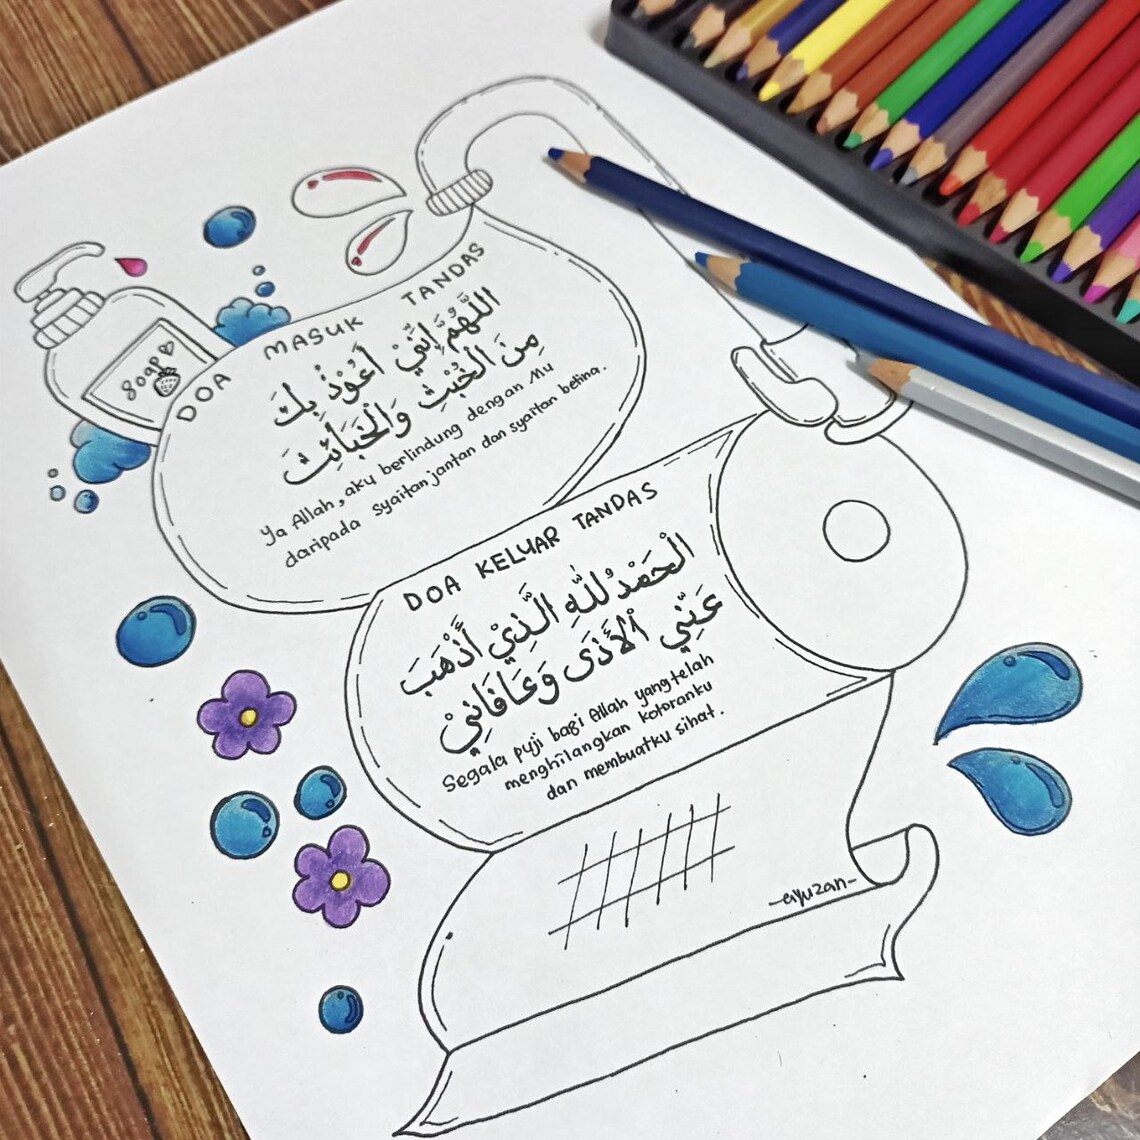 soap
DOA MASUK TANDAS
اللَّهُمَّ إِنِّيْ أَعُوْذُ بِكَ
مِنَ الْخُبُثِ وَالْخَبَائِثِ
Ya Allah, aku berlindung dengan Mu
daripada syaitan jantan dan syaitan betina.
DOA KELUAR TANDAS
الْحَمْدُ لِلّٰهِ الَّذِيْ أَذْهَبَ
عَنِّي الْأَذَى وَعَافَانِيْ
Segala puji bagi Allah yang telah
menghilangkan kotoranku
dan membuatku sihat.
-ayuzan-